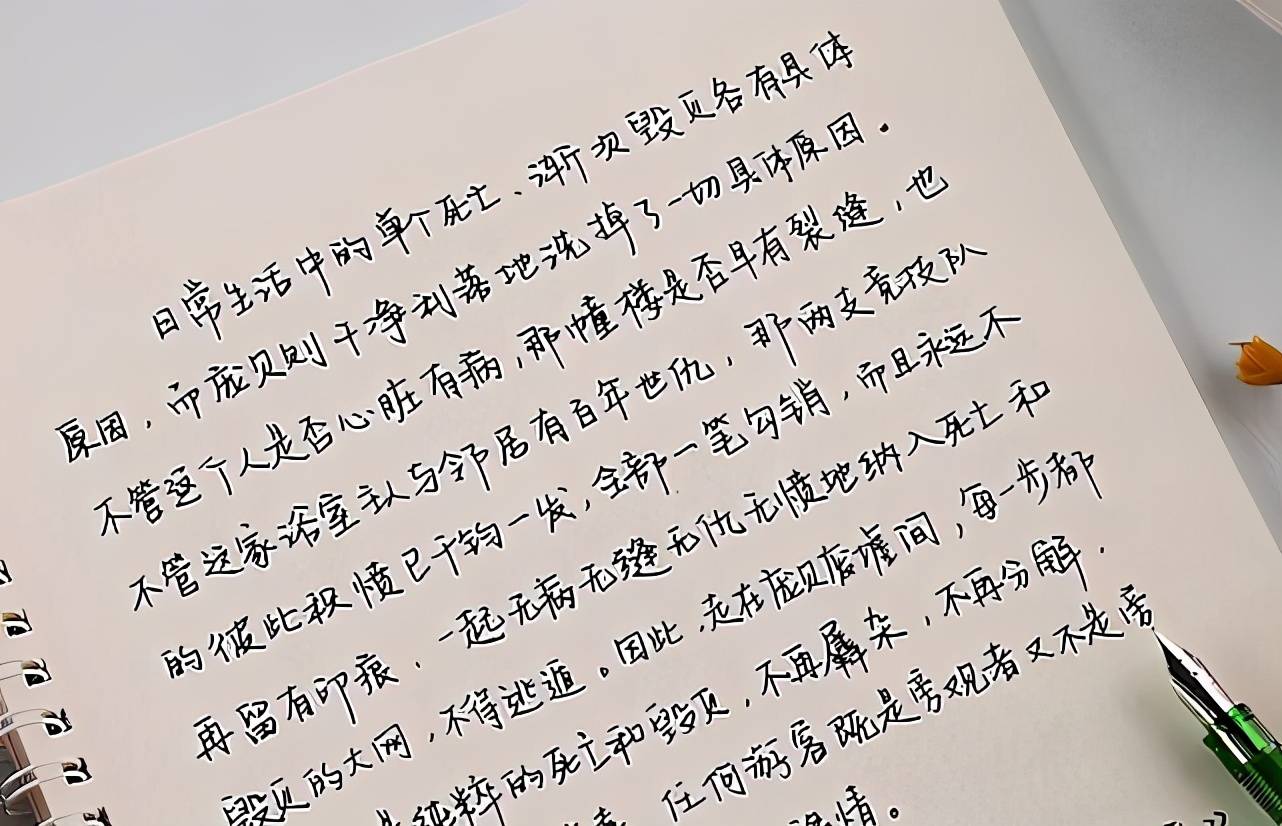 日常生活中的单个死亡、渐次毁灭各有具体
原因，而庞贝则干净利落地洗掉了一切具体原因.
不管这个人是否心脏有病，那幢楼是否早有裂缝，也
不管这家浴室主人与邻居有百年世仇，那两支竞技队
的彼此积愤已千钧一发，全部一笔勾销，而且永远不
再留有印痕，一起无病无缝无仇无愤地纳入死亡和
毁灭的大网，不得逃遁。因此，走在庞贝废墟间，每一步都
是纯粹的死亡和毁灭，不再羼杂，不再分解.
任何游客既是旁观者又不是旁
情。